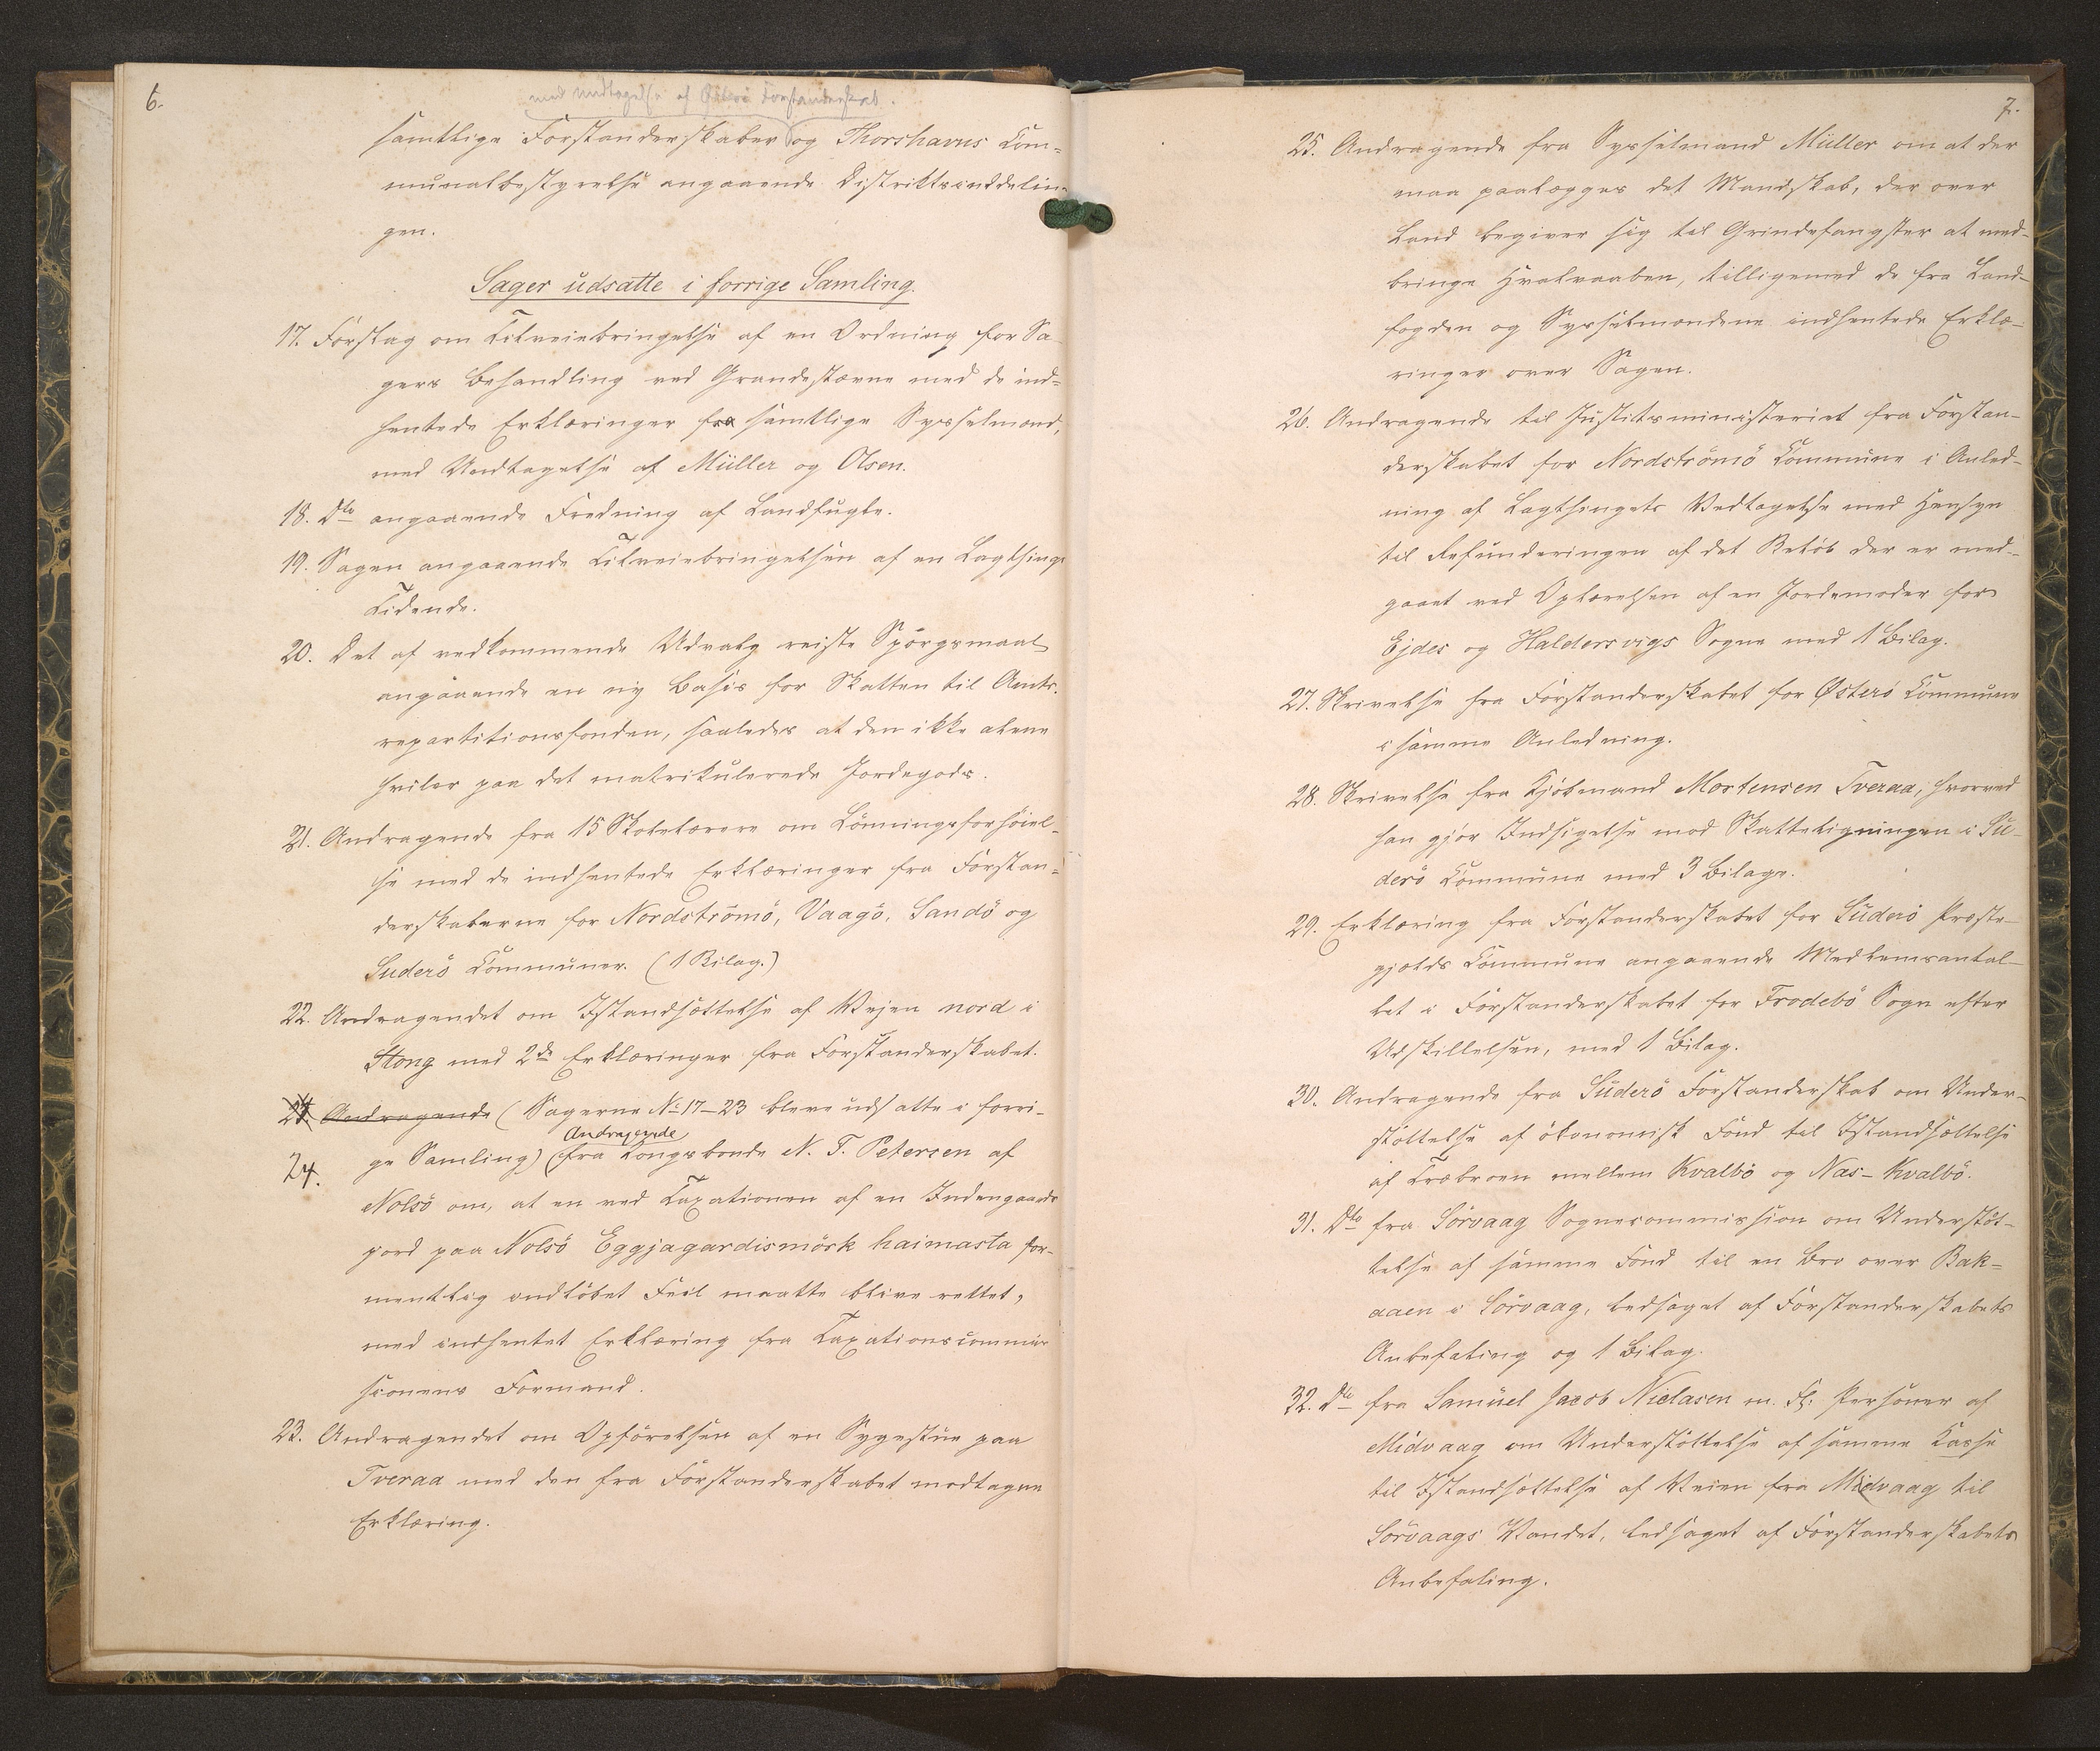 6.
med Undtagelse af Østerø Forstanderskab.
samtlige Forstanderskaber og Thorshavns Com=
munalbestyrelse angaaende Distriktsinddelin-
gen.
Sager udsatte i forrige Samling.
17. Forslag om Tilveiebringelse af en Ordning for Sa-
gers Behandling ved Grandestævne med de ind=
hentede Erklæringer fra samtlige Sysselmænd,
med Undtagelse af Müller og Olsen.
18. Dto angaaende Fredning af Landfugle.
19. Sagen angaaende Tilveiebringelsen af en Lagthings
Tidende.
20. Det af vedkommende Udvalg reiste Spörgsmaal
angaaende en ny Basis for Skatten til Amts-
repartitionsfonden, saaledes at den ikke alene
hviler paa det matrikulerede Jordegods.
21. Andragende fra 15 Skolelærere om Lönningsforhöiel-
se med de indhentede Erklæringer fra Forstan=
derskaberne for Nordströmö, Vaagö, Sandö og
Suderö Communer. (1 Bilag.)
22. Andragendet om Istandsættelse af Vejen nord i
Stong med 2de Erklæringer fra Forstanderskabet.
24. Andragende (Sagerne No 17-23 bleve udsatte i forri-
Andragende
24. ge Samling) (fra Kongsbonde N. T. Petersen af
Nolsö om, at en ved Taxationen af en Indengaards
jord paa Nolsö Eggjagardismörk haimasta for-
mentlig indlöbet Feil maatte blive rettet,
med indhentet Erklæring fra Taxationscommis
sionens Formand.
23. Andragendet om Opförelsen af en Sygestue paa
Tveraa med den fra Forstanderskabet modtagne
Erklæring.
7.
25. Andragende fra Sysselmand Müller om at der
maa paalægges det Mandskab, der over
Land begiver sig til Grindefangster at med-
bringe Hvalvaaben, tilligemed de fra Land-
fogden og Sysselmændene indhentede Erklæ-
ringer over Sagen.
26. Andragende til Justitsministeriet fra Forstan-
derskabet for Nordströmö Commune i Anled-
ning af Lagthingets Vedtagelse med Hensyn
til Refunderingen af det Belöb der er med-
gaaet ved Oplærelsen af en Jordemoder for
Ejdes og Haldersvigs Sogne med 1 Bilag.
27. Skrivelse fra Forstanderskabet for Østerö Commune
i samme Anledning.
28. Skrivelse fra Kjöbmand Mortensen Tveraa, hvorved
han gjör Indsigelse mod Skatteligningen i Su-
derö Commune med 3 Bilage.
29. Erklæring fra Forstanderskabet for Suderö Præste-
gjælds Commune angaaende Medlemsantal-
let i Forstanderskabet for Frodebö Sogn efter
Udskillelsen, med 1 Bilag.
30. Andragende fra Suderö Forstanderskab om Under-
stöttelse af ökonomisk Fond til Istandsættelse
af Træbroen mellem Kvalbö og Nas-Kvalbö.
31. Dto fra Sörvaag Sognecommission om Understöt-
telse af samme Fond til en Bro over Bak=
aaen i Sörvaag, ledsaget af Forstanderskabets
Anbefaling og 1 Bilag.
32. Dto fra Samuel Jacob Niclasen m. Fl. Personer af
Midvaag om Understöttelse af samme Kasse
til Istandsættelse af Veien fra Midvaag til
Sörvaags Vandet, ledsaget af Forstanderskabets
Anbefaling.